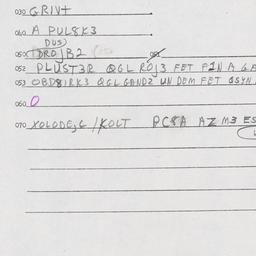 030 GRIVT
040 A PUL8K3
DUS)
050 (DROJB2
052 PLUST3R QGL ROJ3 FET F2N A GE
053 OBD8IRK3 QGL GANDZ UN DEM FET QSYN
060 O
070 XOLODEJ,G /KOLT PC8A AZ M3 ES